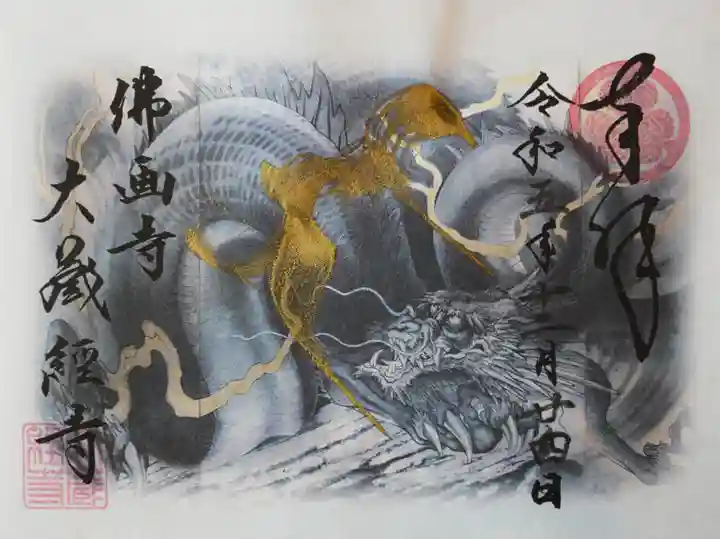 奉拝
令和五年十二月廿四日
佛画寺
大蔵経寺